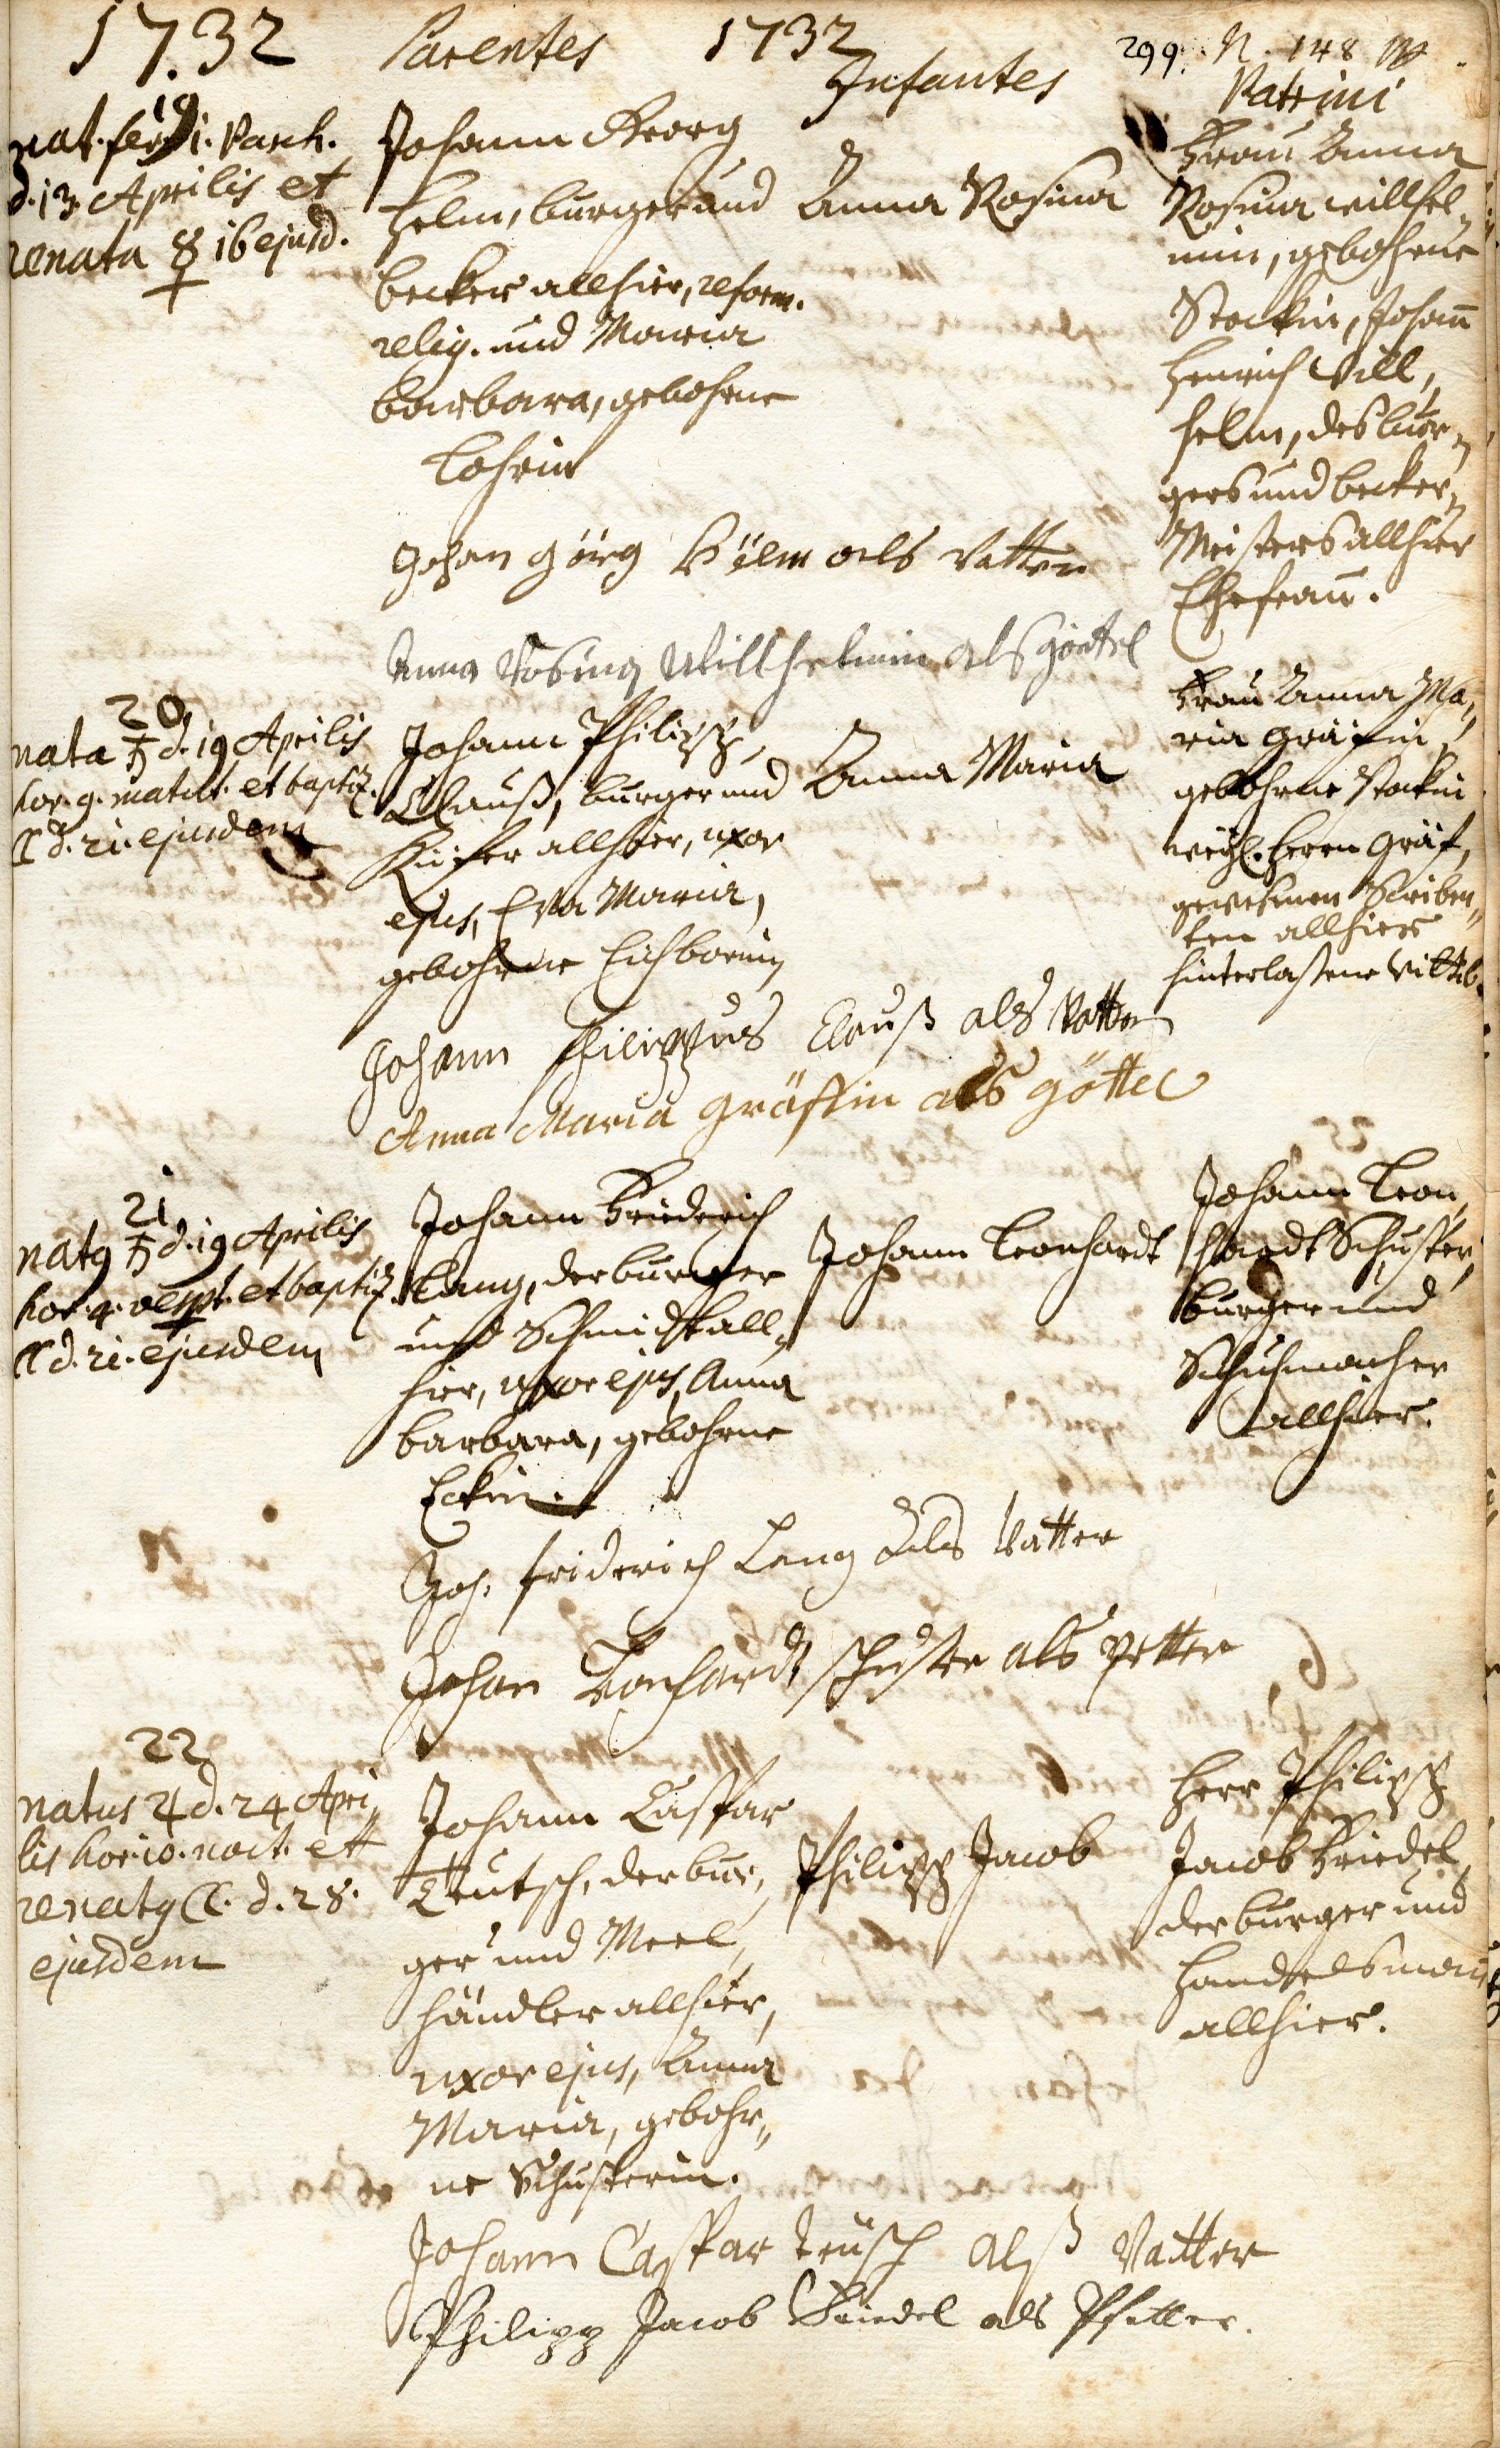 1732 Parentes 1732 Infantes 299. N. 148
Patrini
19
nat. fer. 1. Pasch.
d. 13. Aprilis et
renata ☿ 16 ejusd.
Johann Georg
Helm, burger und
becker allhier, reform.
relig. und Maria
Barbara, gebohrne
Lohrin
Anna Rosina
Frau Anna
Rosina Willhel-
min, gebohrne
Stockin, Johann
Henrich Will,
helm, des bur-
gers und becker,
Meisters allhier
Ehefrau.
Johan görg Hëlm als Vatter
Anna Rosina Willhelmin als göttel
20
nata ♄ d. 19 Aprilis
hor. 9. matut. et baptiz.
☾ d. 21. ejusdem
Johann Philipp
Clauß, burger und
Küfer allhier, uxor
ejus, Eva Maria,
gebohrne Eichbornin
Anna Maria
Frau Anna Ma,
ria Gräfin,
gebohrne Stockin
weyl. Herrn Gräf,
gewesenen Scriben,,
ten allhier
hinterlaßene Wittib.
Johann Philippus Clauß als Vatter
Anna Maria Gräffin als göttel
21
natq ♄ d. 19 Aprilis
hor. 4. vespt. et baptiz.
☾ d. 21. ejusdem
Johann Friederich
Lang, der burger
und Schmidt all,,
hier, uxor ejus, Anna
Barbara, gebohrne
Eckin.
Johann Leonhardt
Johann Leon,
hardt Schuster,
burger und
Schuhmacher
allhier.
Joh. Friderich Lang als Vatter
Johan Leonhardt Schuster als petter
22
natus ♃ d. 24 Apri,,
lis hor. 10. noct. et
renatq ☾. d. 28.
ejusdem
Johann Caspar
Teutsch, der bur,
ger und Meel,
händler allhier,
uxor ejus, Anna
Maria, gebohr,,
ne Schusterin.
Philipp Jacob
Herr Philipp
Jacob Friedel
der burger und
Handelsman
allhier.
Johann Caspar Teüsch alß Vatter
Philipp Jacob Friedel als Pfetter.